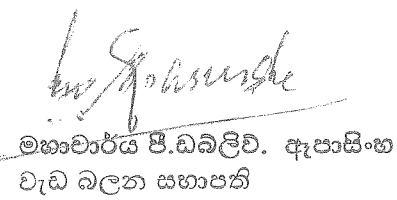 මහාචාර්ය පී.ඩබ්ලිව්. ඇපාසිංහ
වැඩ බලන සභාපති